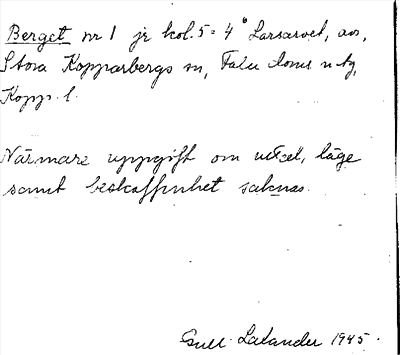 Berget nr 1 jr kol. 5 = 4° Larsarvet, avs,
Stora Kopparbergs sn, Falu doms ntg,
Kopp. l.
Närmare uppgift om utset, läge
samt beskaffenhet saknas.
Gull. Lalander 1945.